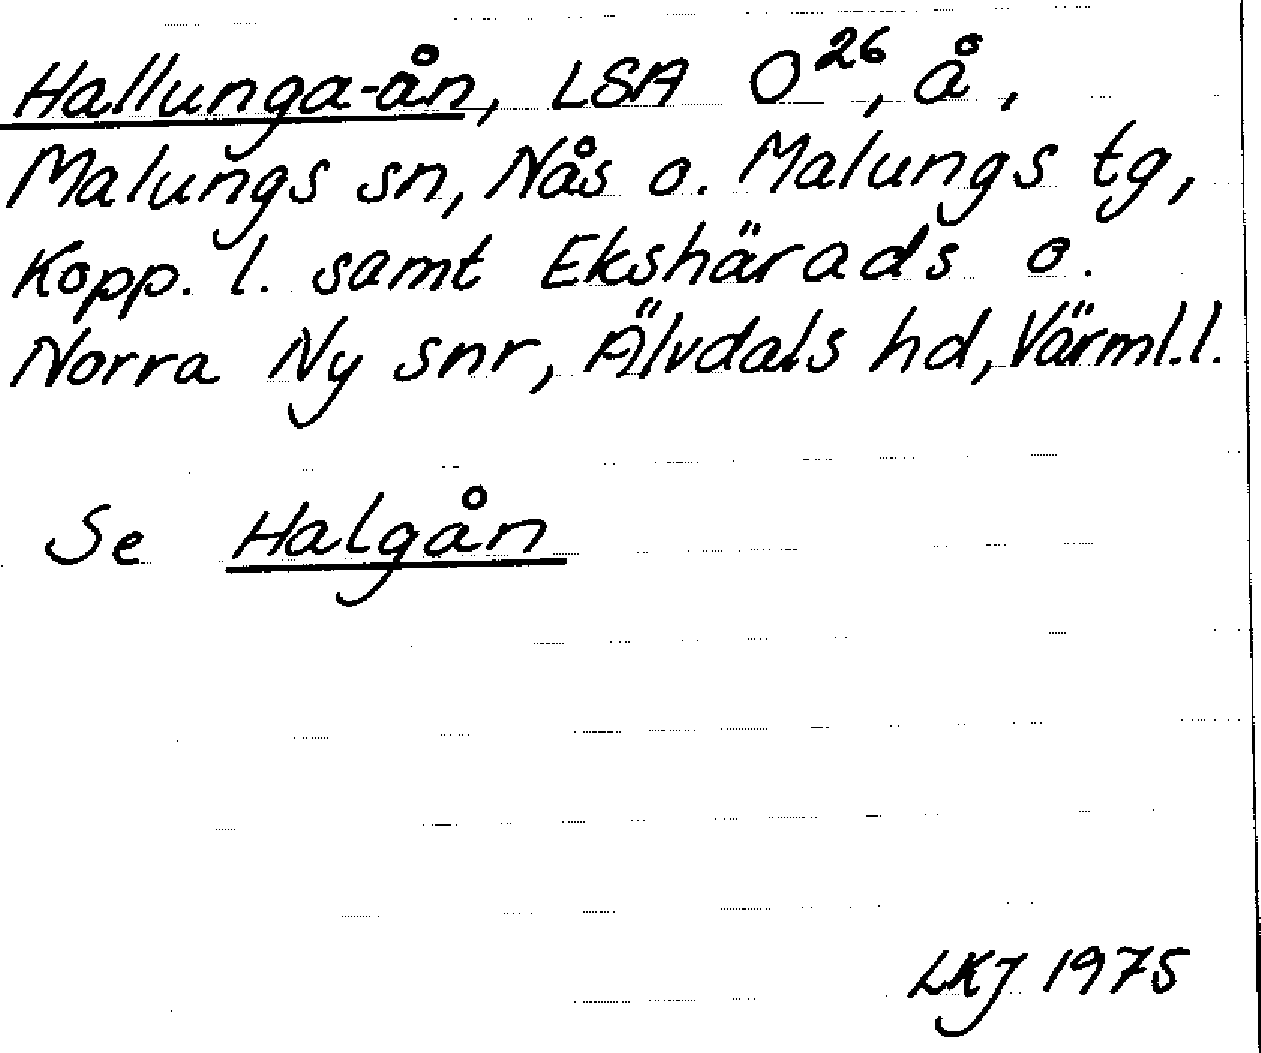 Hallunga-ån, LSA O²⁶, å,
Malungs sn, Nås o. Malungs tg,
Kopp. l. samt Ekshärads o.
Norra Ny snr, Älvdals hd, Värml.l.
Se Halgån
LKJ 1975